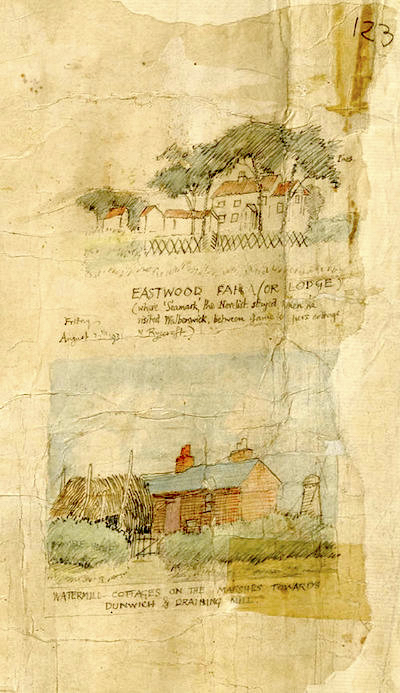 123
EASTWOOD FARM (OR LODGE)
(where 'Seamark' the Novelist stayed when he
visited Walberswick, between
Friday
August
WATERMILL COTTAGES ON THE MARSHES TOWARDS
DUNWICH & DRAINING MILL.